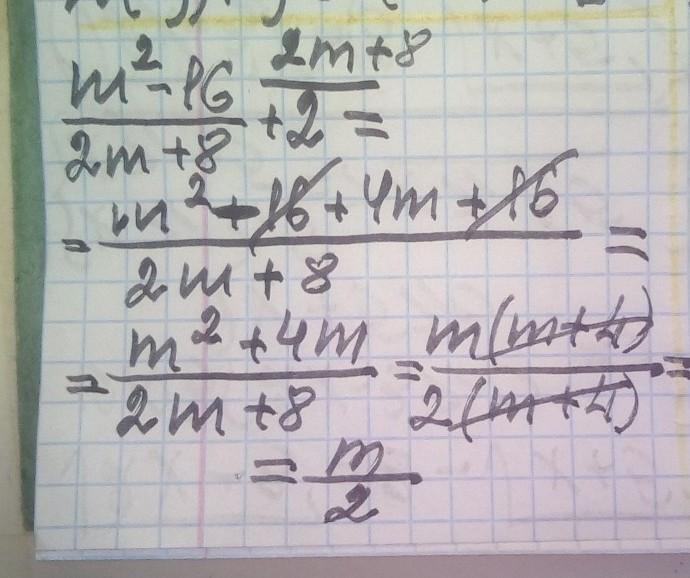 m² - 16 / 2m + 8 + 2 (2m + 8) =
= m² - 16 + 4m + 16 / 2m + 8 =
= m² + 4m / 2m + 8 = m(m + 4) / 2(m + 4) =
= m / 2